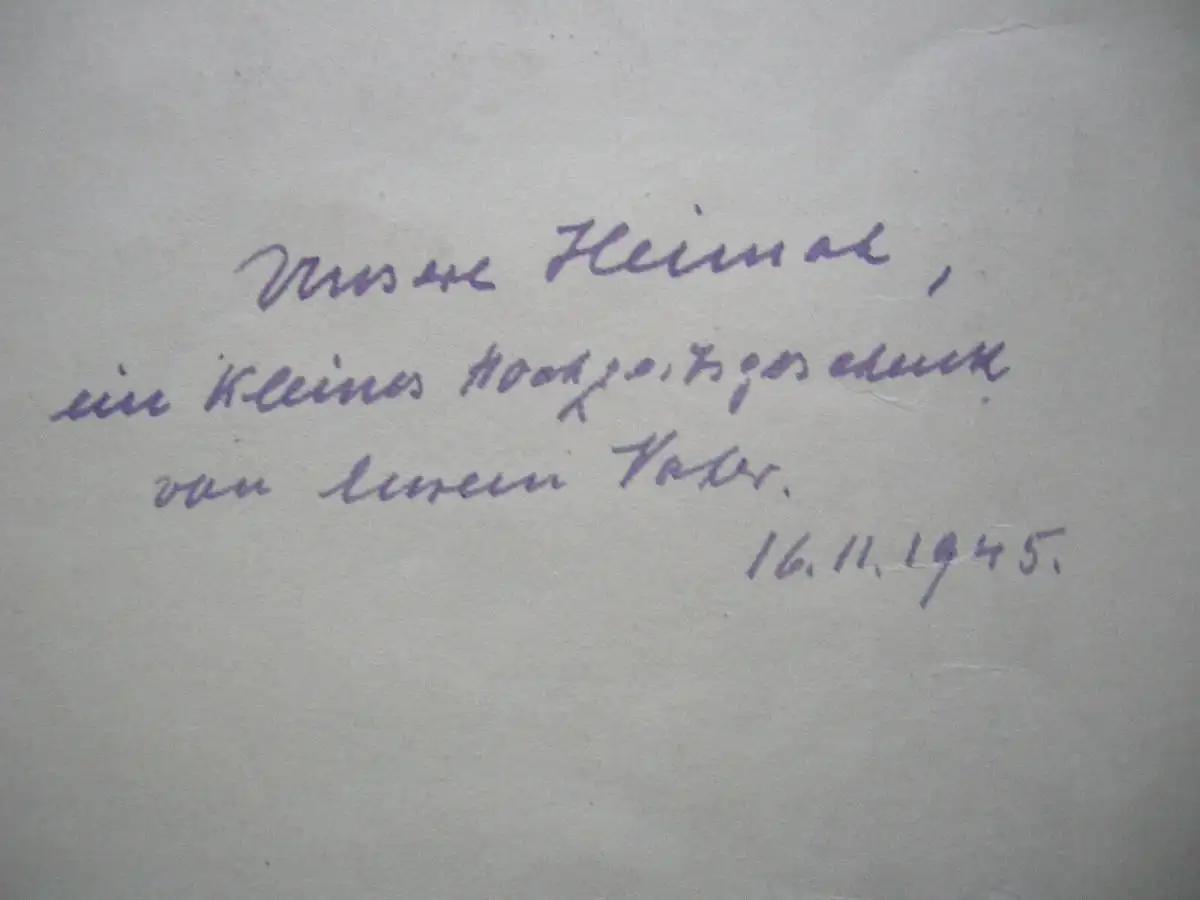 Unsere Heimat,
ein kleines Hochzeitsgeschenk
von Eurem Vater.
16.11.1945.